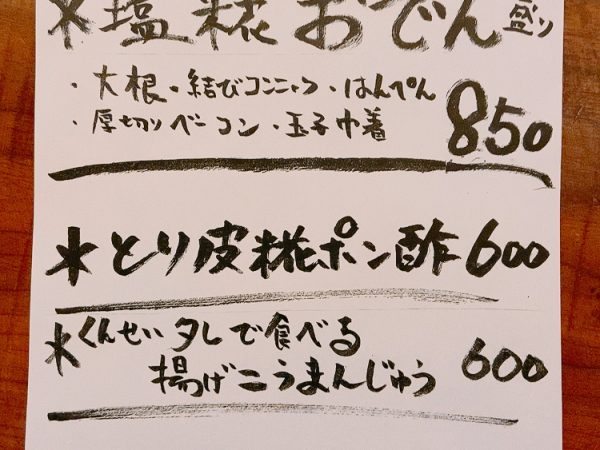 *塩糀おでん盛り
・大根・結びコンニャク・はんぺん
・厚切りベーコン・玉子巾着 850
*とり皮糀ポン酢 600
*くんせいタレで食べる
揚げこうまんじゅう 600